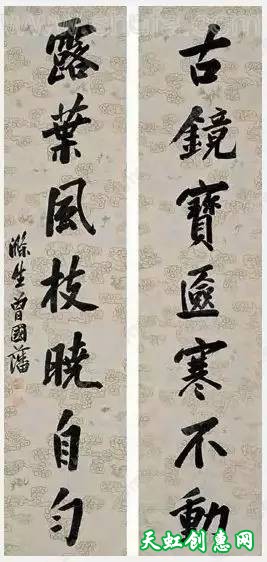 古鏡寶匳寒不動
露葉風枝曉自勻
滌生曾國藩
天虹创意网